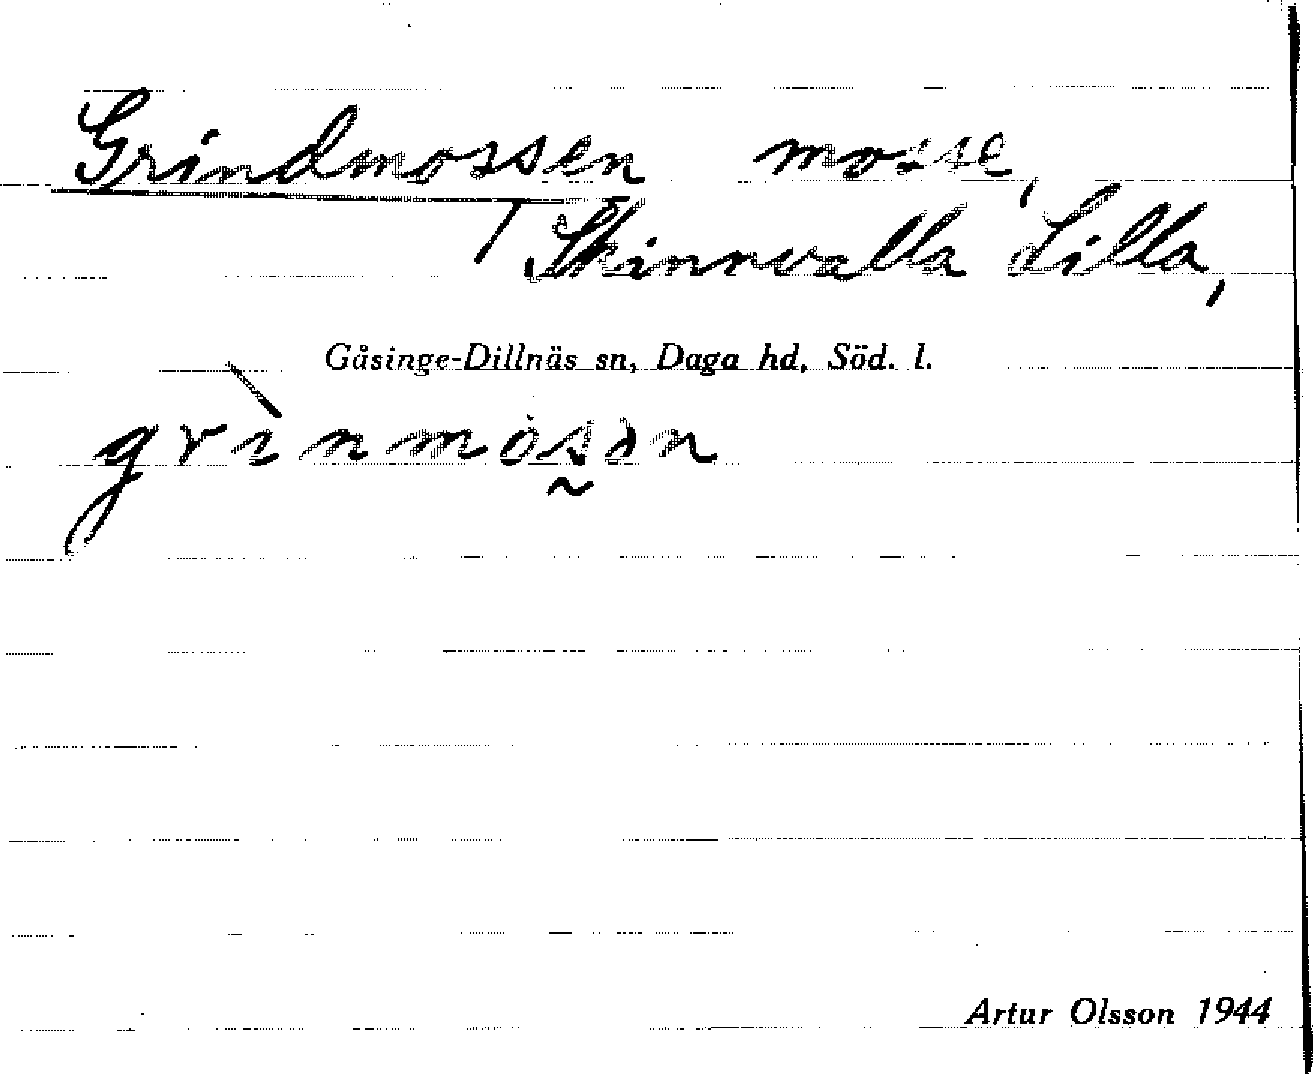 Grindmossen mosse,
Skinnvalla Lilla,
Gåsinge-Dillnäs sn, Daga hd, Söd. l.
grìnmòs̰ən
Artur Olsson 1944